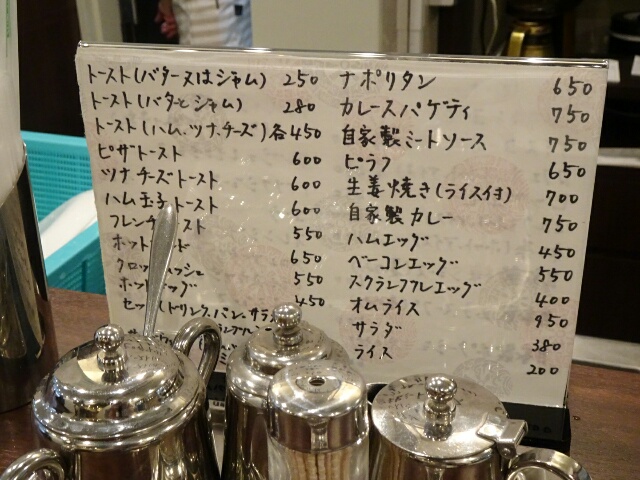 トースト(バター又はジャム) 250
トースト(バターとジャム) 280
トースト(ハム、ツナ、チーズ)各450
ピザトースト 600
ツナチーズトースト 600
ハム玉子トースト 600
フレンチトースト 550
ホット 650
クロックムッシュ 550
ホットドッグ 450
セット(ドリンク、パン、サラダ
ナポリタン 650
カレースパゲティ 750
自家製ミートソース 750
ピラフ 650
生姜焼き(ライス付) 700
自家製カレー 750
ハムエッグ 450
ベーコンエッグ 550
スクランブルエッグ 400
オムライス 950
サラダ 380
ライス 200